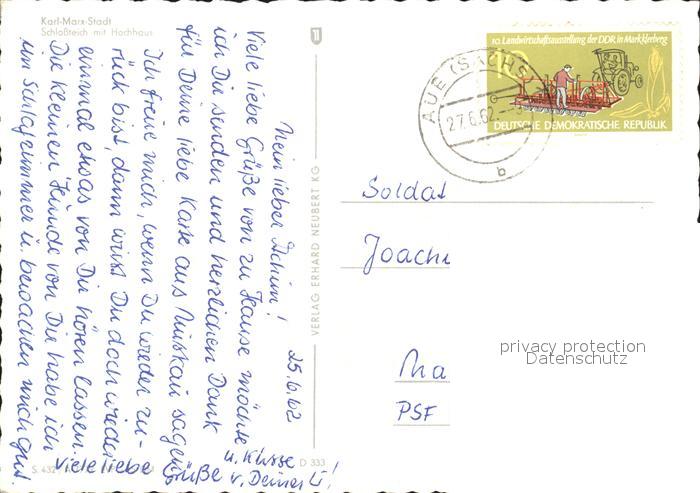 Karl-Marx-Stadt
Schloßteich mit Hochhaus
10. Landwirtschaftsausstellung der DDR in Markkleeberg
10
DEUTSCHE DEMOKRATISCHE REPUBLIK
AUE (SACHS
27.6.62
b
Mein lieber Achim! 25.6.62
Viele liebe Grüße von zu Hause möchte
ich Dir senden und herzlichen Dank
für Deine liebe Karte aus Muskau sagen
Ich freue mich, wenn Du wieder zu-
rück bist, dann wirst Du doch wieder
einmal etwas von Dir hören lassen.
Die kleinen Hunde von Dir habe ich
im Schlafzimmer u. bewachen mich gut
Viele liebe Grüße
u. Küsse
v. Deiner
VERLAG ERHARD NEUBERT KG
Soldat
Joachi
Ma
PSF
privacy protection
Datenschutz
D 333
S. 432